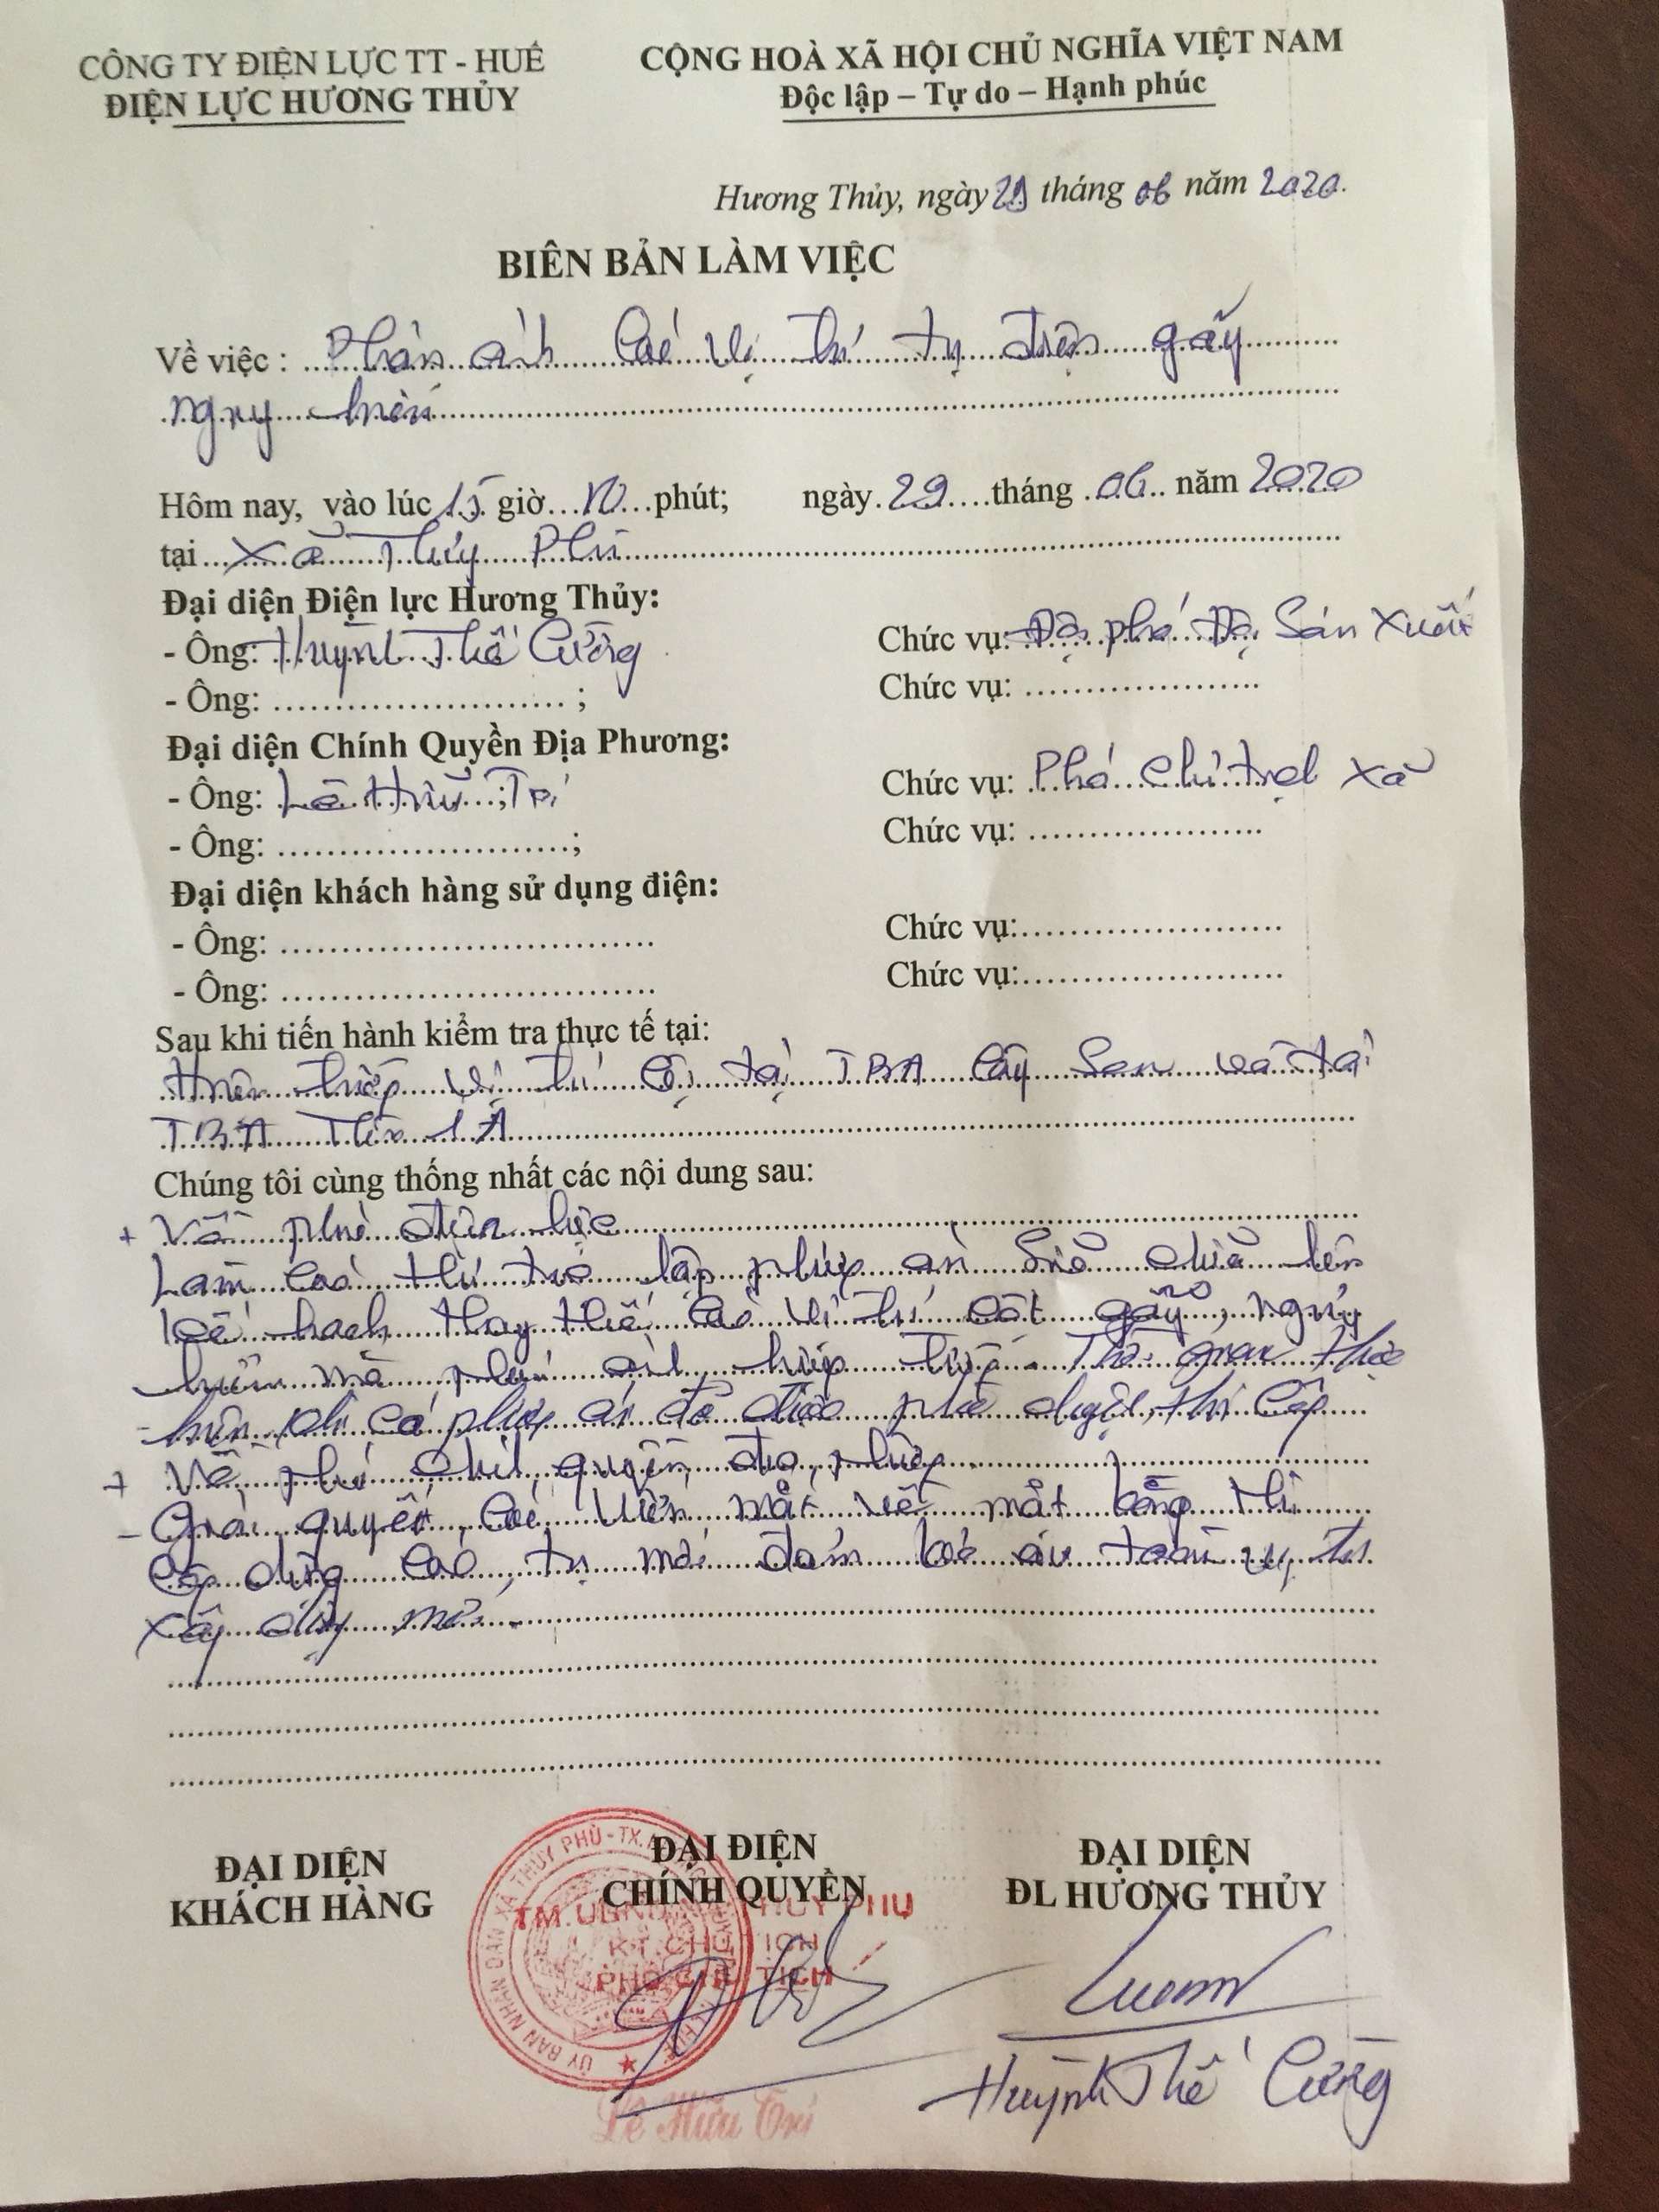 CÔNG TY ĐIỆN LỰC TT - HUẾ
ĐIỆN LỰC HƯƠNG THỦY
CỘNG HOÀ XÃ HỘI CHỦ NGHĨA VIỆT NAM
Độc lập – Tự do – Hạnh phúc
Hương Thủy, ngày 29 tháng 06 năm 2020.
BIÊN BẢN LÀM VIỆC
Về việc : Phản ánh các vị trí trụ điện gãy
nguy hiểm
Hôm nay, vào lúc 15 giờ 10 phút; ngày 29 tháng 06 năm 2020
tại Xã Thủy Phù
Đại diện Điện lực Hương Thủy:
- Ông: Huỳnh Thế Cường Chức vụ: Đội phó Đội Sản Xuất
- Ông: ; Chức vụ:
Đại diện Chính Quyền Địa Phương:
- Ông: Lê Hữu Trí ; Chức vụ: Phó chủ tịch xã
- Ông: ; Chức vụ:
Đại diện khách hàng sử dụng điện:
- Ông: Chức vụ:
- Ông: Chức vụ:
Sau khi tiến hành kiểm tra thực tế tại:
Hiện trường vị trí cột tại TBA Cây Sen và tại
TBA
Chúng tôi cùng thống nhất các nội dung sau:
+ Về phía điện lực
Làm các thủ tục lập phương án sửa chữa lên
kế hoạch thay thế các vị trí cột gãy, nguy
hiểm mà phản ánh Thời gian thực
hiện khi có phương án đã được phê duyệt, thi
+ Về phía chính quyền địa phương
- Giải quyết các vướn mắt về mặt bằng khi
dựng các trụ mới đảm bảo an toàn vị trí
xây dựng mới.
ĐẠI DIỆN
KHÁCH HÀNG
ĐẠI ĐIỆN
CHÍNH QUYỀN
ĐẠI DIỆN
ĐL HƯƠNG THỦY
TM.UBND THUY PHU
KT.CHỦ TỊCH
PHÓ CHỦ TỊCH
ỦY BAN NHÂN DÂN XÃ THỦY PHÙ-TX.
Lê Hữu Trí
Huỳnh Thế Cường